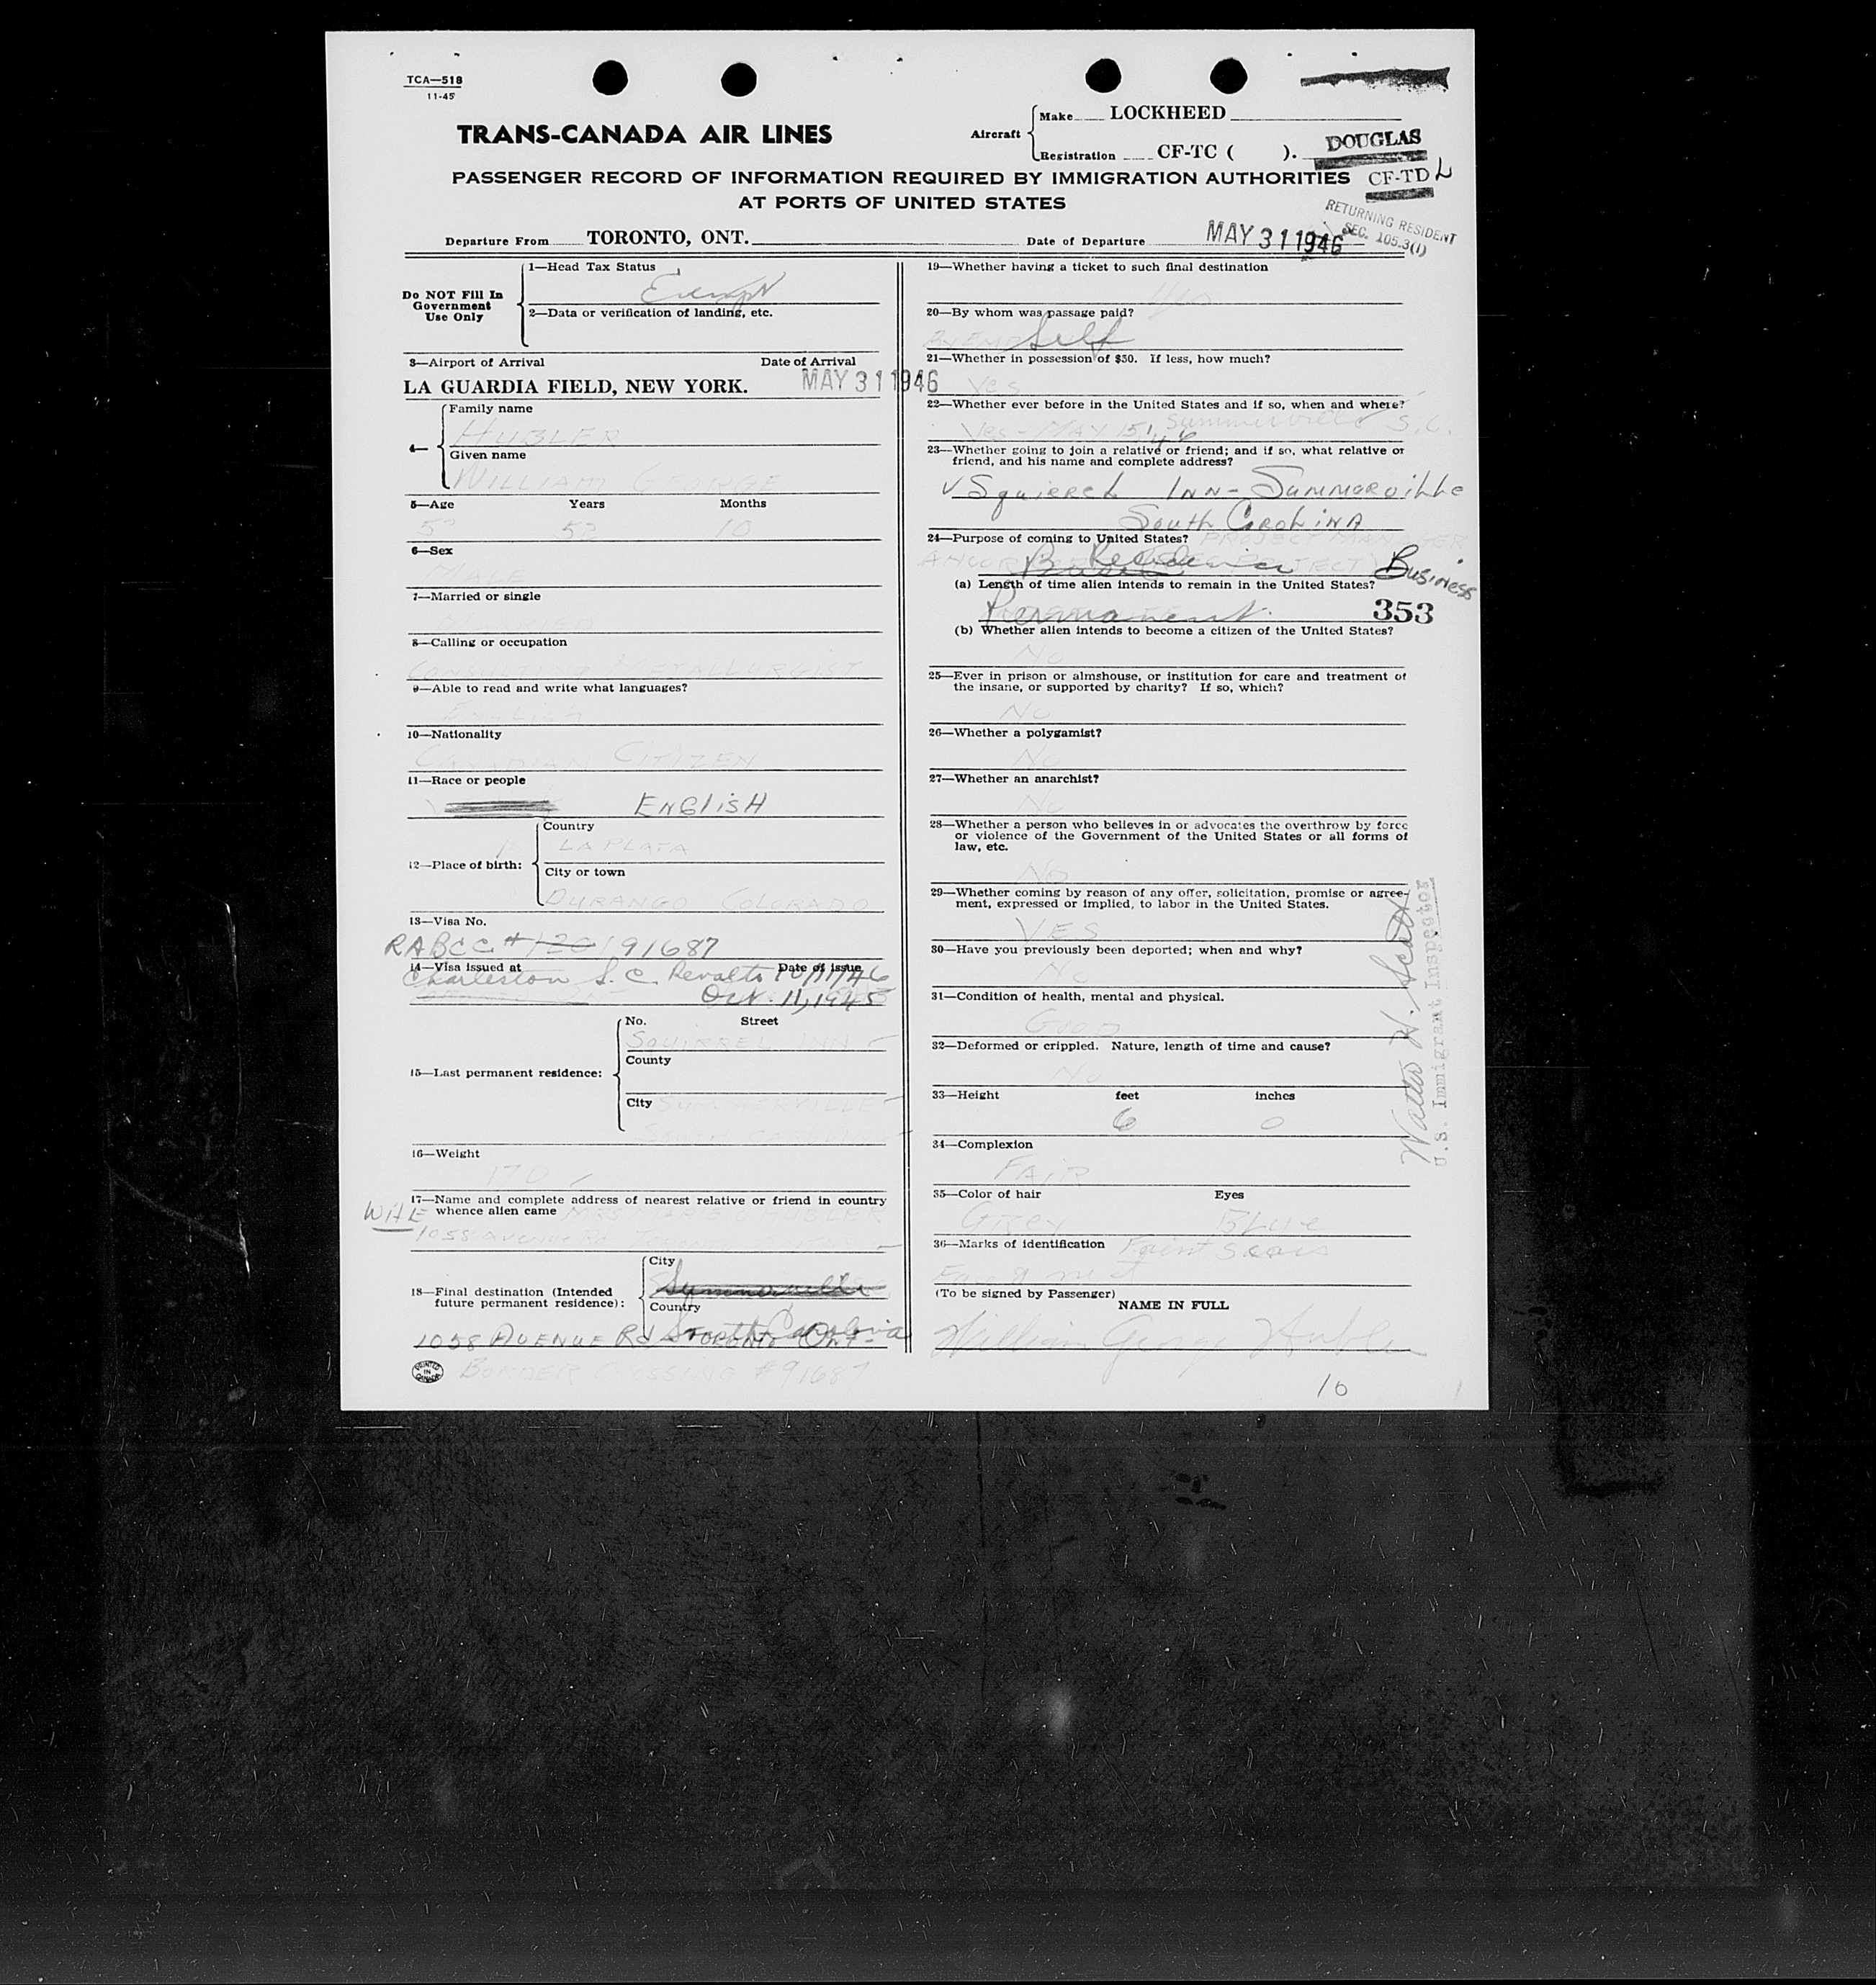 TCA—518
11-45
TRANS-CANADA AIR LINES
Aircraft
Make LOCKHEED
Registration CF-TC ( ).
DOUGLAS
CF-TD L
PASSENGER RECORD OF INFORMATION REQUIRED BY IMMIGRATION AUTHORITIES
AT PORTS OF UNITED STATES
RETURNING RESIDENT
SEC. 105.3(1)
Departure From TORONTO, ONT.
Date of Departure MAY 31 1946
Do NOT Fill In
Government
Use Only
1—Head Tax Status
Exempt
2—Data or verification of landing, etc.
3—Airport of Arrival Date of Arrival
LA GUARDIA FIELD, NEW YORK. MAY 31 1946
4—
Family name
HUBLER
Given name
WILLIAM GEORGE
5—Age Years Months
52 10
6—Sex
MALE
7—Married or single
8—Calling or occupation
CONSULTING METALLURGIST
9—Able to read and write what languages?
English
10—Nationality
CANADIAN CITIZEN
11—Race or people
ENGLISH
12—Place of birth:
Country
LA PLATA
City or town
DURANGO COLORADO
13—Visa No.
RABCC # 91687
14—Visa issued at Date of issue
Charleston S.C. 10/11/46
Oct. 11, 1945
15—Last permanent residence:
No. Street
SQUIRREL INN
County
City SUMMERVILLE
SOUTH CAROLINA
16—Weight
170
17—Name and complete address of nearest relative or friend in country
whence alien came MRS HUBLER
WIFE
1058 AVENUE RD
18—Final destination (Intended
future permanent residence):
City
Summerville
Country
South Carolina
1058 AVENUE Rd TORONTO Ont.
PRINTED
IN
CANADA
BORDER CROSSING #91687
19—Whether having a ticket to such final destination
Yes
20—By whom was passage paid?
Self
21—Whether in possession of $50. If less, how much?
Yes
22—Whether ever before in the United States and if so, when and where?
Yes - MAY 15/46 Summerville S.C.
23—Whether going to join a relative or friend; and if so, what relative or
friend, and his name and complete address?
Squirrel INN - Summerville
South Carolina
24—Purpose of coming to United States? PROJECT MANAGER
Residence Business
(a) Length of time alien intends to remain in the United States?
Permanent 353
(b) Whether alien intends to become a citizen of the United States?
No
25—Ever in prison or almshouse, or institution for care and treatment of
the insane, or supported by charity? If so, which?
No
26—Whether a polygamist?
No
27—Whether an anarchist?
No
28—Whether a person who believes in or advocates the overthrow by force
or violence of the Government of the United States or all forms of
law, etc.
No
29—Whether coming by reason of any offer, solicitation, promise or agree-
ment, expressed or implied, to labor in the United States.
YES
30—Have you previously been deported; when and why?
No
31—Condition of health, mental and physical.
Good
32—Deformed or crippled. Nature, length of time and cause?
No
33—Height feet inches
6 0
34—Complexion
FAIR
35—Color of hair Eyes
Grey Blue
36—Marks of identification Faint scars
(To be signed by Passenger)
NAME IN FULL
William George Hubler
10
Walter H. Scott
U.S. Immigrant Inspector